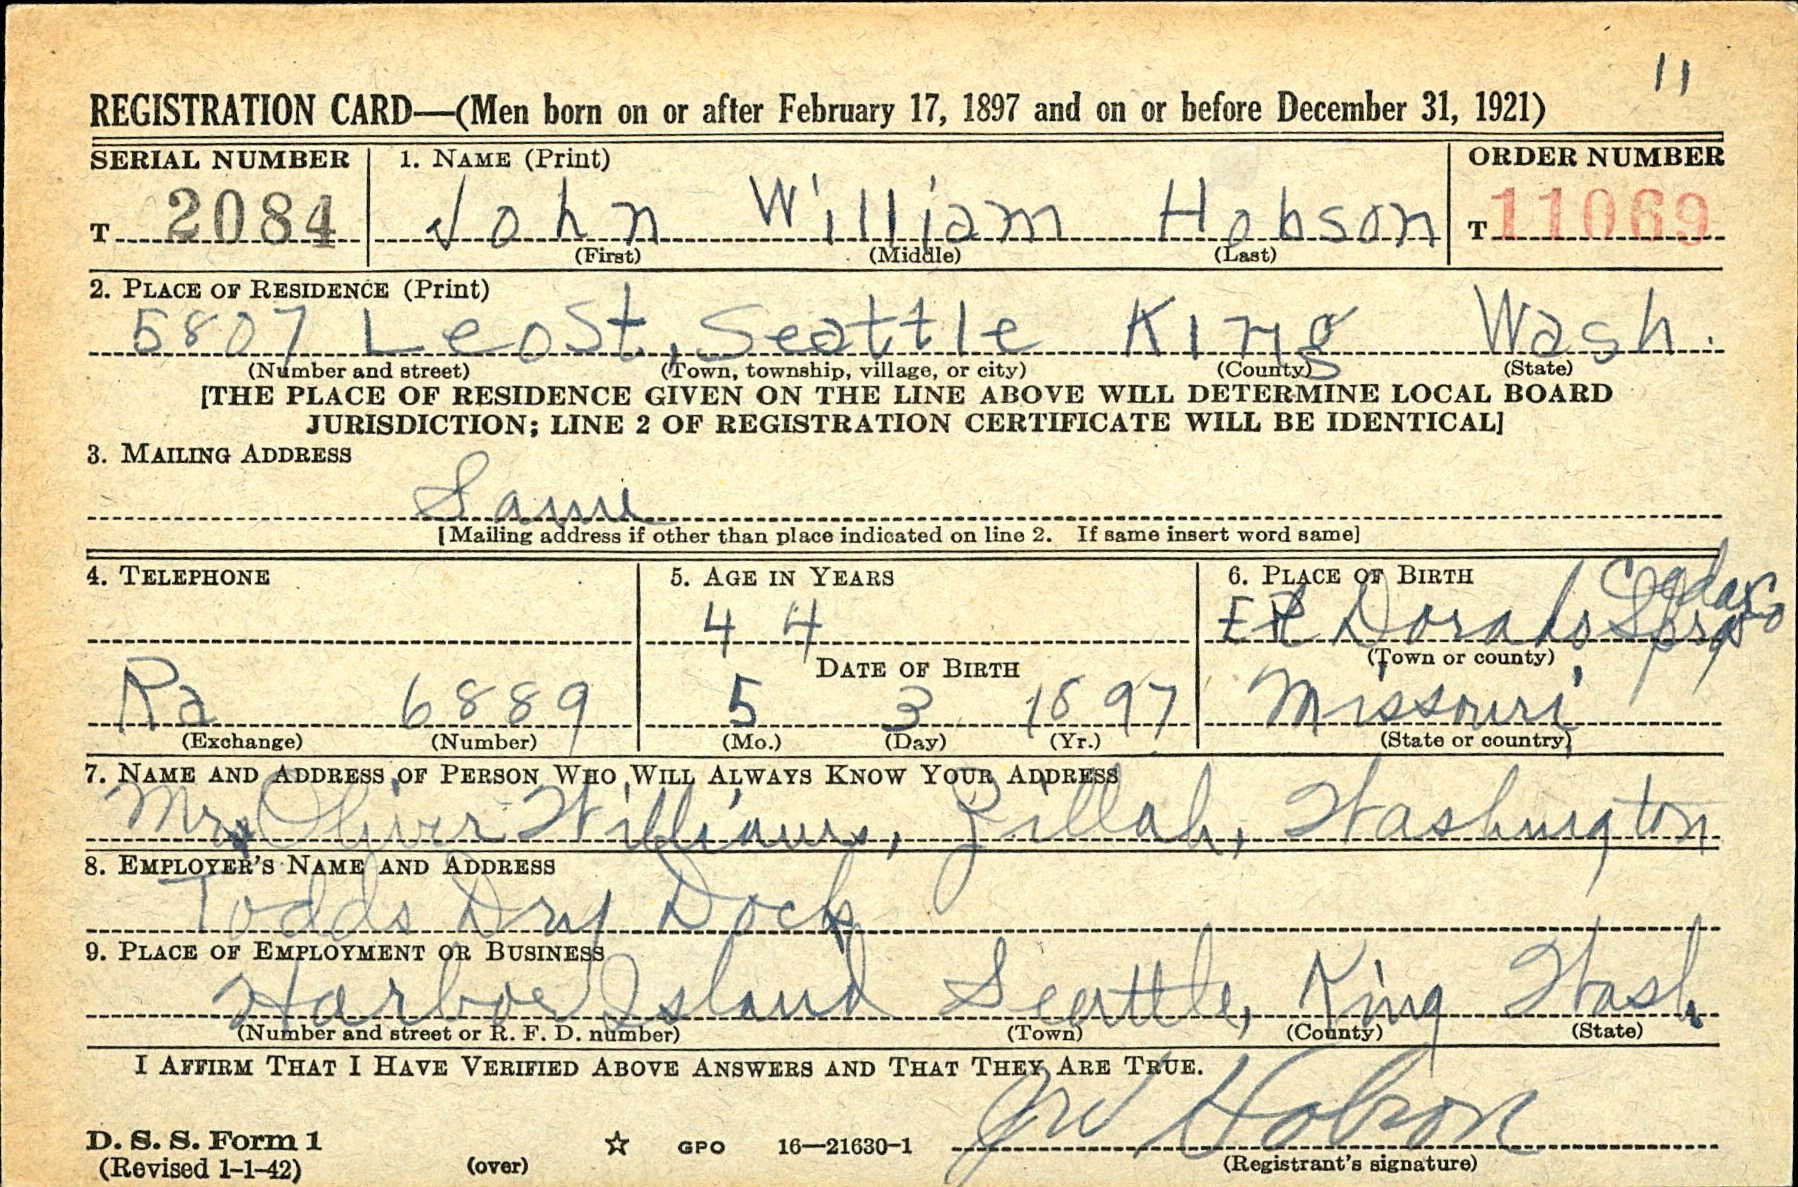 11
REGISTRATION CARD—(Men born on or after February 17, 1897 and on or before December 31, 1921)
SERIAL NUMBER 1. NAME (Print) ORDER NUMBER
T 2084 John William Hobson T 11069
(First) (Middle) (Last)
2. PLACE OF RESIDENCE (Print)
5807 Leo St, Seattle King Wash.
(Number and street) (Town, township, village, or city) (County) (State)
[THE PLACE OF RESIDENCE GIVEN ON THE LINE ABOVE WILL DETERMINE LOCAL BOARD
JURISDICTION; LINE 2 OF REGISTRATION CERTIFICATE WILL BE IDENTICAL]
3. MAILING ADDRESS
Same
[Mailing address if other than place indicated on line 2. If same insert word same]
4. TELEPHONE 5. AGE IN YEARS 6. PLACE OF BIRTH
44 El Dorado Sprgs Cedar Co
(Town or county)
DATE OF BIRTH
Ra 6889 5 3 1897 Missouri
(Exchange) (Number) (Mo.) (Day) (Yr.) (State or country)
7. NAME AND ADDRESS OF PERSON WHO WILL ALWAYS KNOW YOUR ADDRESS
Mrs Oliver Williams, Zillah, Washington
8. EMPLOYER'S NAME AND ADDRESS
Todds Dry Dock
9. PLACE OF EMPLOYMENT OR BUSINESS
Harbor Island Seattle, King Wash.
(Number and street or R. F. D. number) (Town) (County) (State)
I AFFIRM THAT I HAVE VERIFIED ABOVE ANSWERS AND THAT THEY ARE TRUE.
D. S. S. Form 1 GPO 16—21630-1 JW Hobson
(Revised 1-1-42) (over) (Registrant's signature)